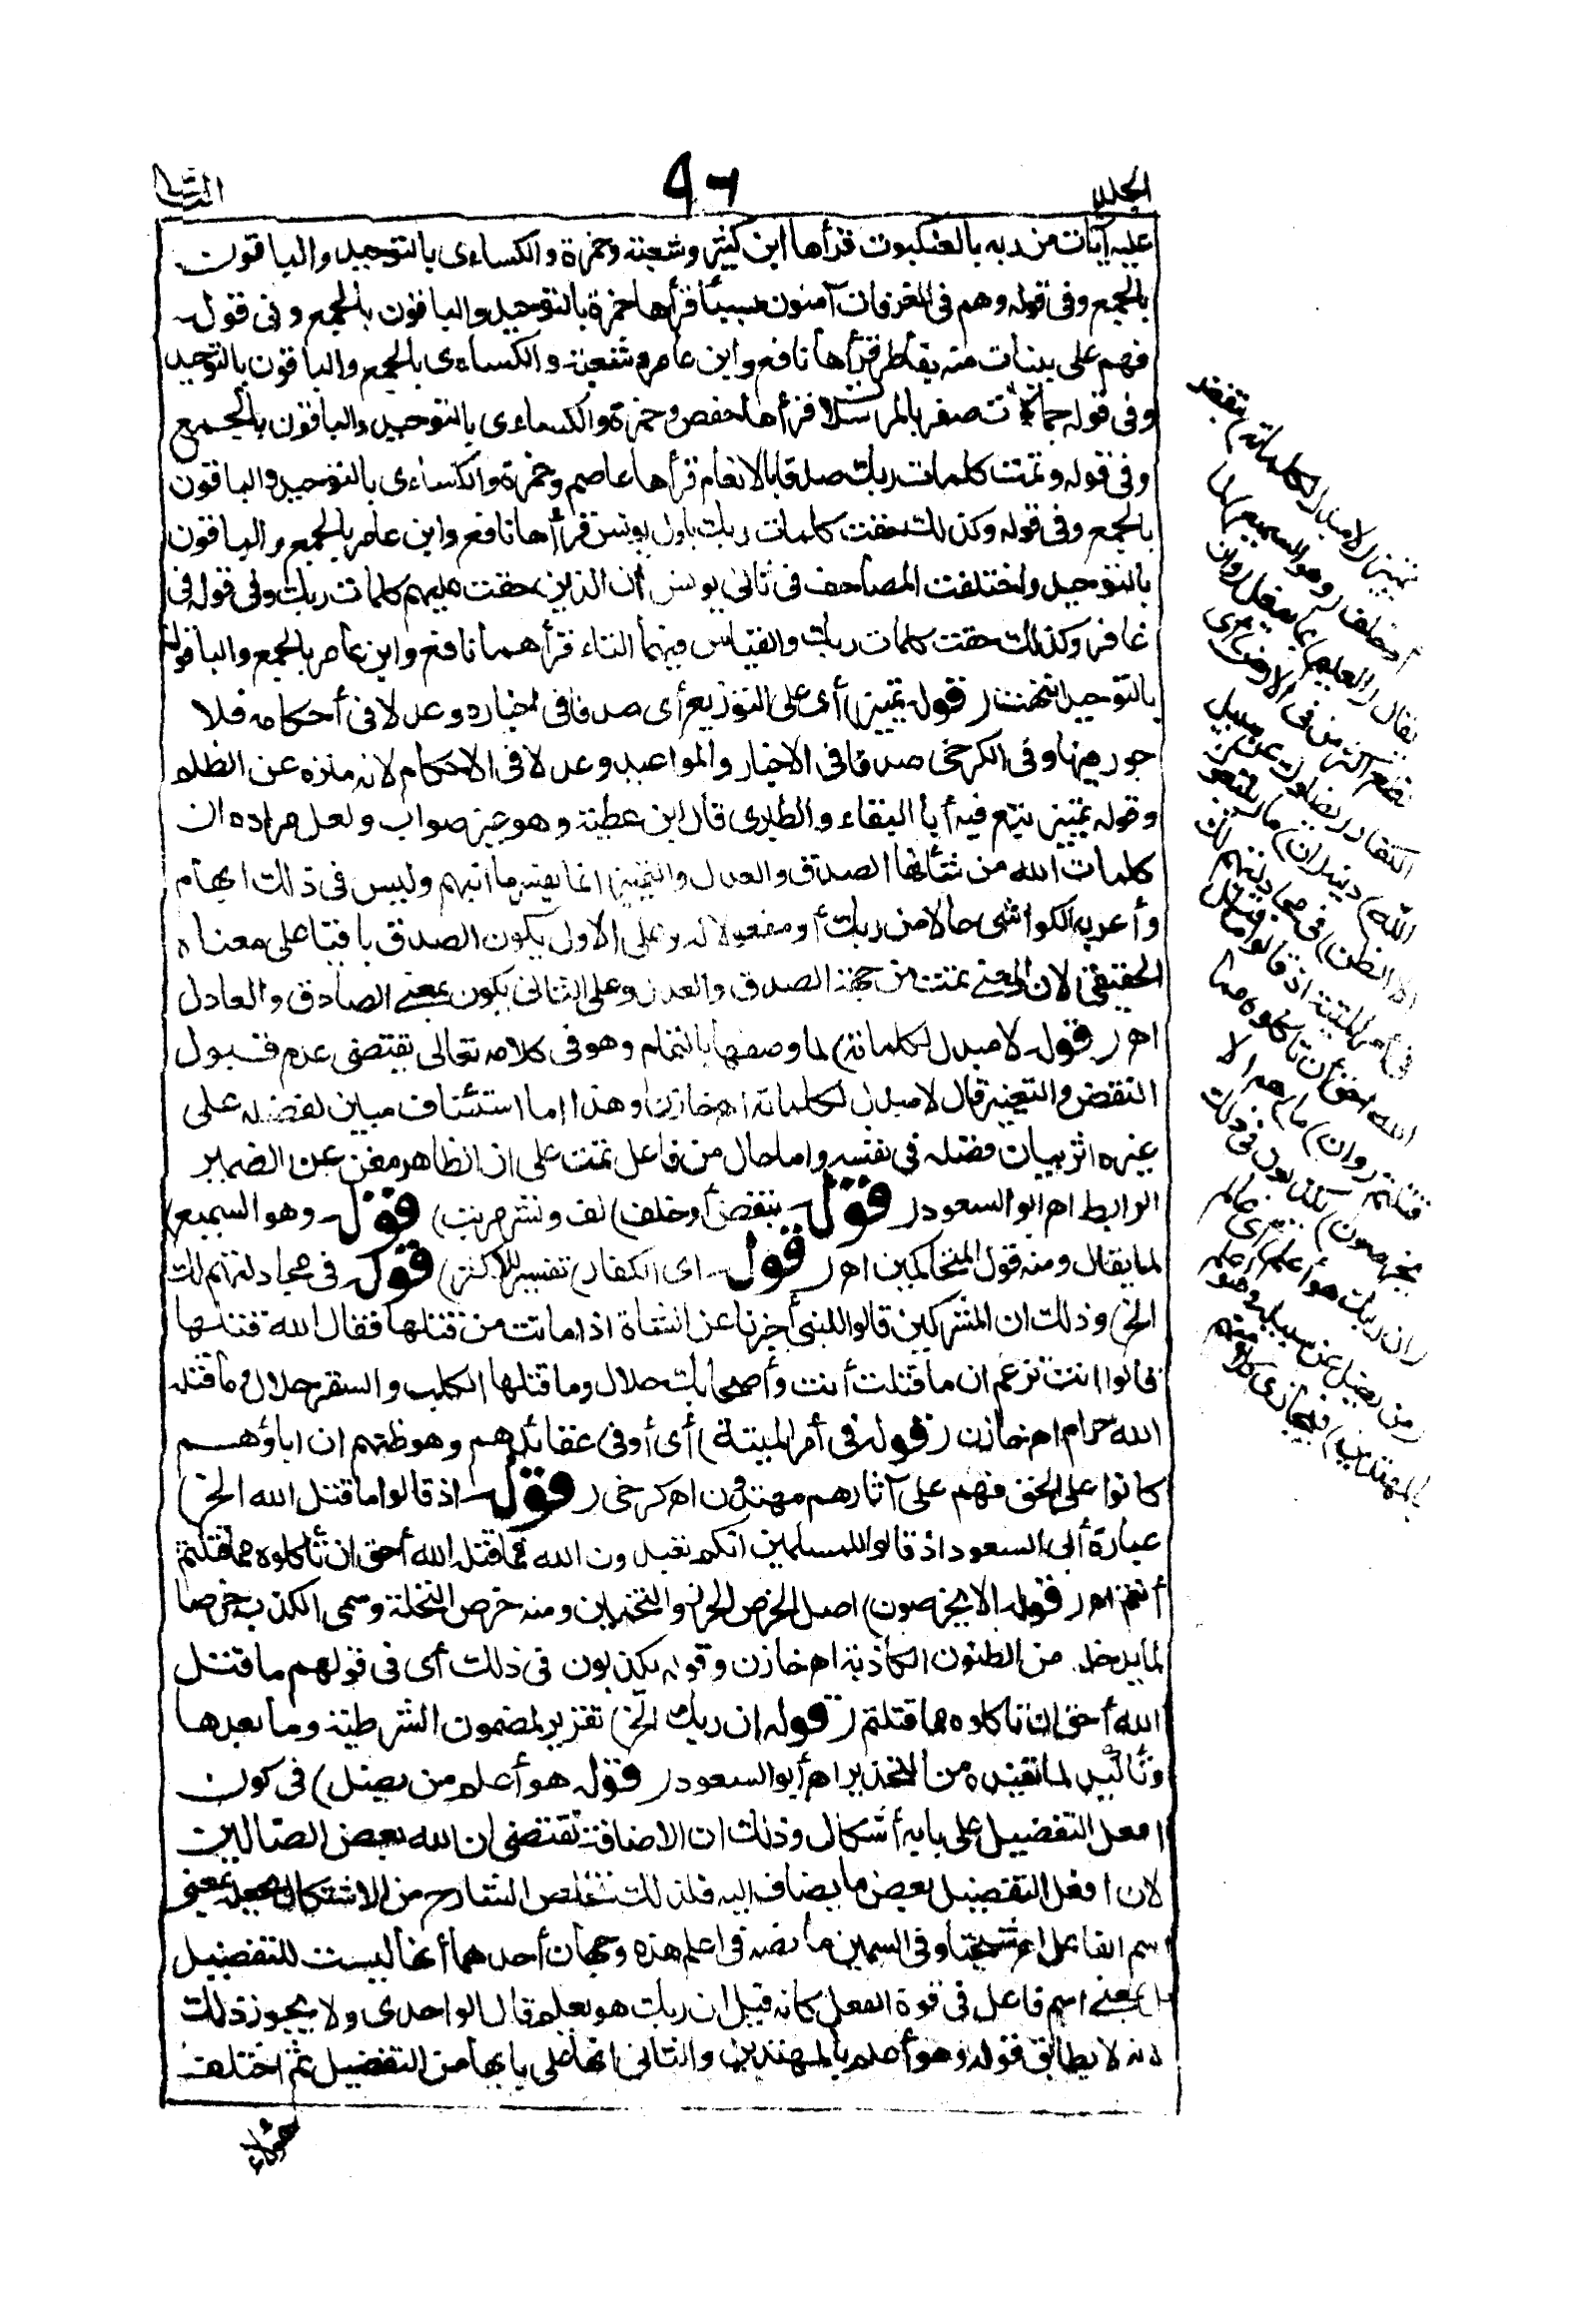 الجلد
٩٦
الثانى
عليه آيات من ربه بالعنكبوت قرأها ابن كثير وشعبة وحمزة والكساءى بالتوحيد والباقون
بالجمع وفى قوله وهم فى الغرفات آمنون بسبأ قرأها حمزة بالتوحيد والباقون بالجمع وفى قوله
فهم على بينات منه بفاطر قرأها نافع وابن عامر وشعبة والكساءى بالجمع والباقون بالتوحيد
وفى قوله جمالات صفر بالمرسلات قرأها حفص وحمزة والكساءى بالتوحيد والباقون بالجمع
وفى قوله وتمت كلمات ربك صدقا بالانعام قرأها عاصم وحمزة والكساءى بالتوحيد والباقون
بالجمع وفى قوله وكذلك حقت كلمات ربك باول يونس قرأها نافع وابن عامر بالجمع والباقون
بالتوحيد واختلفت المصاحف فى ثانى يونس ان الذين حقت عليهم كلمات ربك وفى قوله فى
غافر وكذلك حقت كلمات ربك والقياس فيهما التاء قرأهما نافع وابن عامر بالجمع والباقون
بالتوحيد اه شيخنا (قوله تمييز) أى على التوزيع أى صدقا فى اخباره وعدلا فى أحكامه فلا
جور فيها وفى الكرخى صدقا فى الاخبار والمواعيد وعدلا فى الاحكام لانه منزه عن الظلم
وقوله تمييز تبع فيه أبا البقاء والطبرى قال ابن عطية وهو غير صواب ولعل مراده ان
كلمات الله من شأنها الصدق والعدل والتمييز انما يفسر ما انبهم وليس فى ذلك ابهام
وأعربه الكواشى حالا من ربك أو مفعولا له وعلى الاول يكون الصدق باقيا على معناه
الحقيقى لان المعنى تمت من جهة الصدق والعدل وعلى الثانى يكون بمعنى الصادق والعادل
اه (قوله لا مبدل لكلماته) لما وصفها بالتمام وهو فى كلامه تعالى يقتضى عدم قبول
النقض والتغيير قال لا مبدل لكلماته اه خازن وهذا اما استئناف مبين لفضله على
غيره اثر بيان فضله فى نفسه واما حال من فاعل تمت على ان الظاهر مغن عن الضمير
الرابط اه ابو السعود (قوله بنقض أو خلف) لف ونشر مرتب (قوله وهو السميع)
لما يقال ومنه قول المتحاكمين اه (قوله اى الكفار) تفسير للاكثر (قوله فى مجادلتهم لك
الخ) وذلك ان المشركين قالوا للنبى أخبرنا عن الشاة اذا ماتت من قتلها فقال الله قتلها
قالوا انت تزعم ان ما قتلت أنت وأصحابك حلال وما قتلها الكلب والصقر حلال وما قتله
الله حرام اه خازن (قوله فى أمر الميتة) أى أو فى عقائدهم وهو ظنهم ان اباؤهم
كانوا على الحق فهم على آثارهم مهتدون اه كرخى (قوله اذ قالوا ما قتل الله الخ)
عبارة أبى السعود اذ قالوا للمسلمين انكم تعبدون الله فما قتله الله أحق ان تأكلوه مما قتلتم
أنتم اه (قوله الا يخرصون) اصل الخرص الحزر والتخمين ومنه خرص النخلة وسمى الكذب خرصا
لما يدخله من الظنون الكاذبة اه خازن وقوله يكذبون فى ذلك أى فى قولهم ما قتل
الله أحق ان تأكلوه مما قتلتم (قوله ان ربك الخ) تقرير لمضمون الشرطية وما بعدها
وتأكيد لما تفيده من التحذير اه أبو السعود (قوله هو أعلم من يضل) فى كون
افعل التفضيل على بابه أشكال وذلك ان الاضافة تقتضى ان الله بعض الضالين
لان افعل التفضيل بعض ما يضاف اليه فلذلك تخلص الشارح من الاشكال بجعله بمعنى
اسم الفاعل اه شيخنا وفى السمين ما نصه فى اعلم هذه وجهان أحدهما أنها ليست للتفضيل
بل بمعنى اسم فاعل فى قوة الفعل كانه قيل ان ربك هو يعلم قال الواحدى ولا يجوز ذلك
لانه لا يطابق قوله وهو أعلم بالمهتدين والثانى انها على بابها من التفضيل ثم اختلف
تمييز (لا مبدل لكلماته) بنقض
أو خلف (وهو السميع) لما
يقال (العليم) بما يفعل (وان
تطع اكثر من فى الارض) اى
الكفار (يضلوك عن سبيل
الله) دينه (ان) ما (يتبعون
الا الظن) فى مجادلتهم لك
فى أمر الميتة اذ قالوا ما قتل
الله احق أن تأكلوه مما
قتلتم (وان) ما (هم الا
يخرصون) يكذبون فى ذلك
(ان ربك هو أعلم) اى عالم
(من يضل عن سبيله وهو أعلم
بالمهتدين) فيجازى كلا منهم